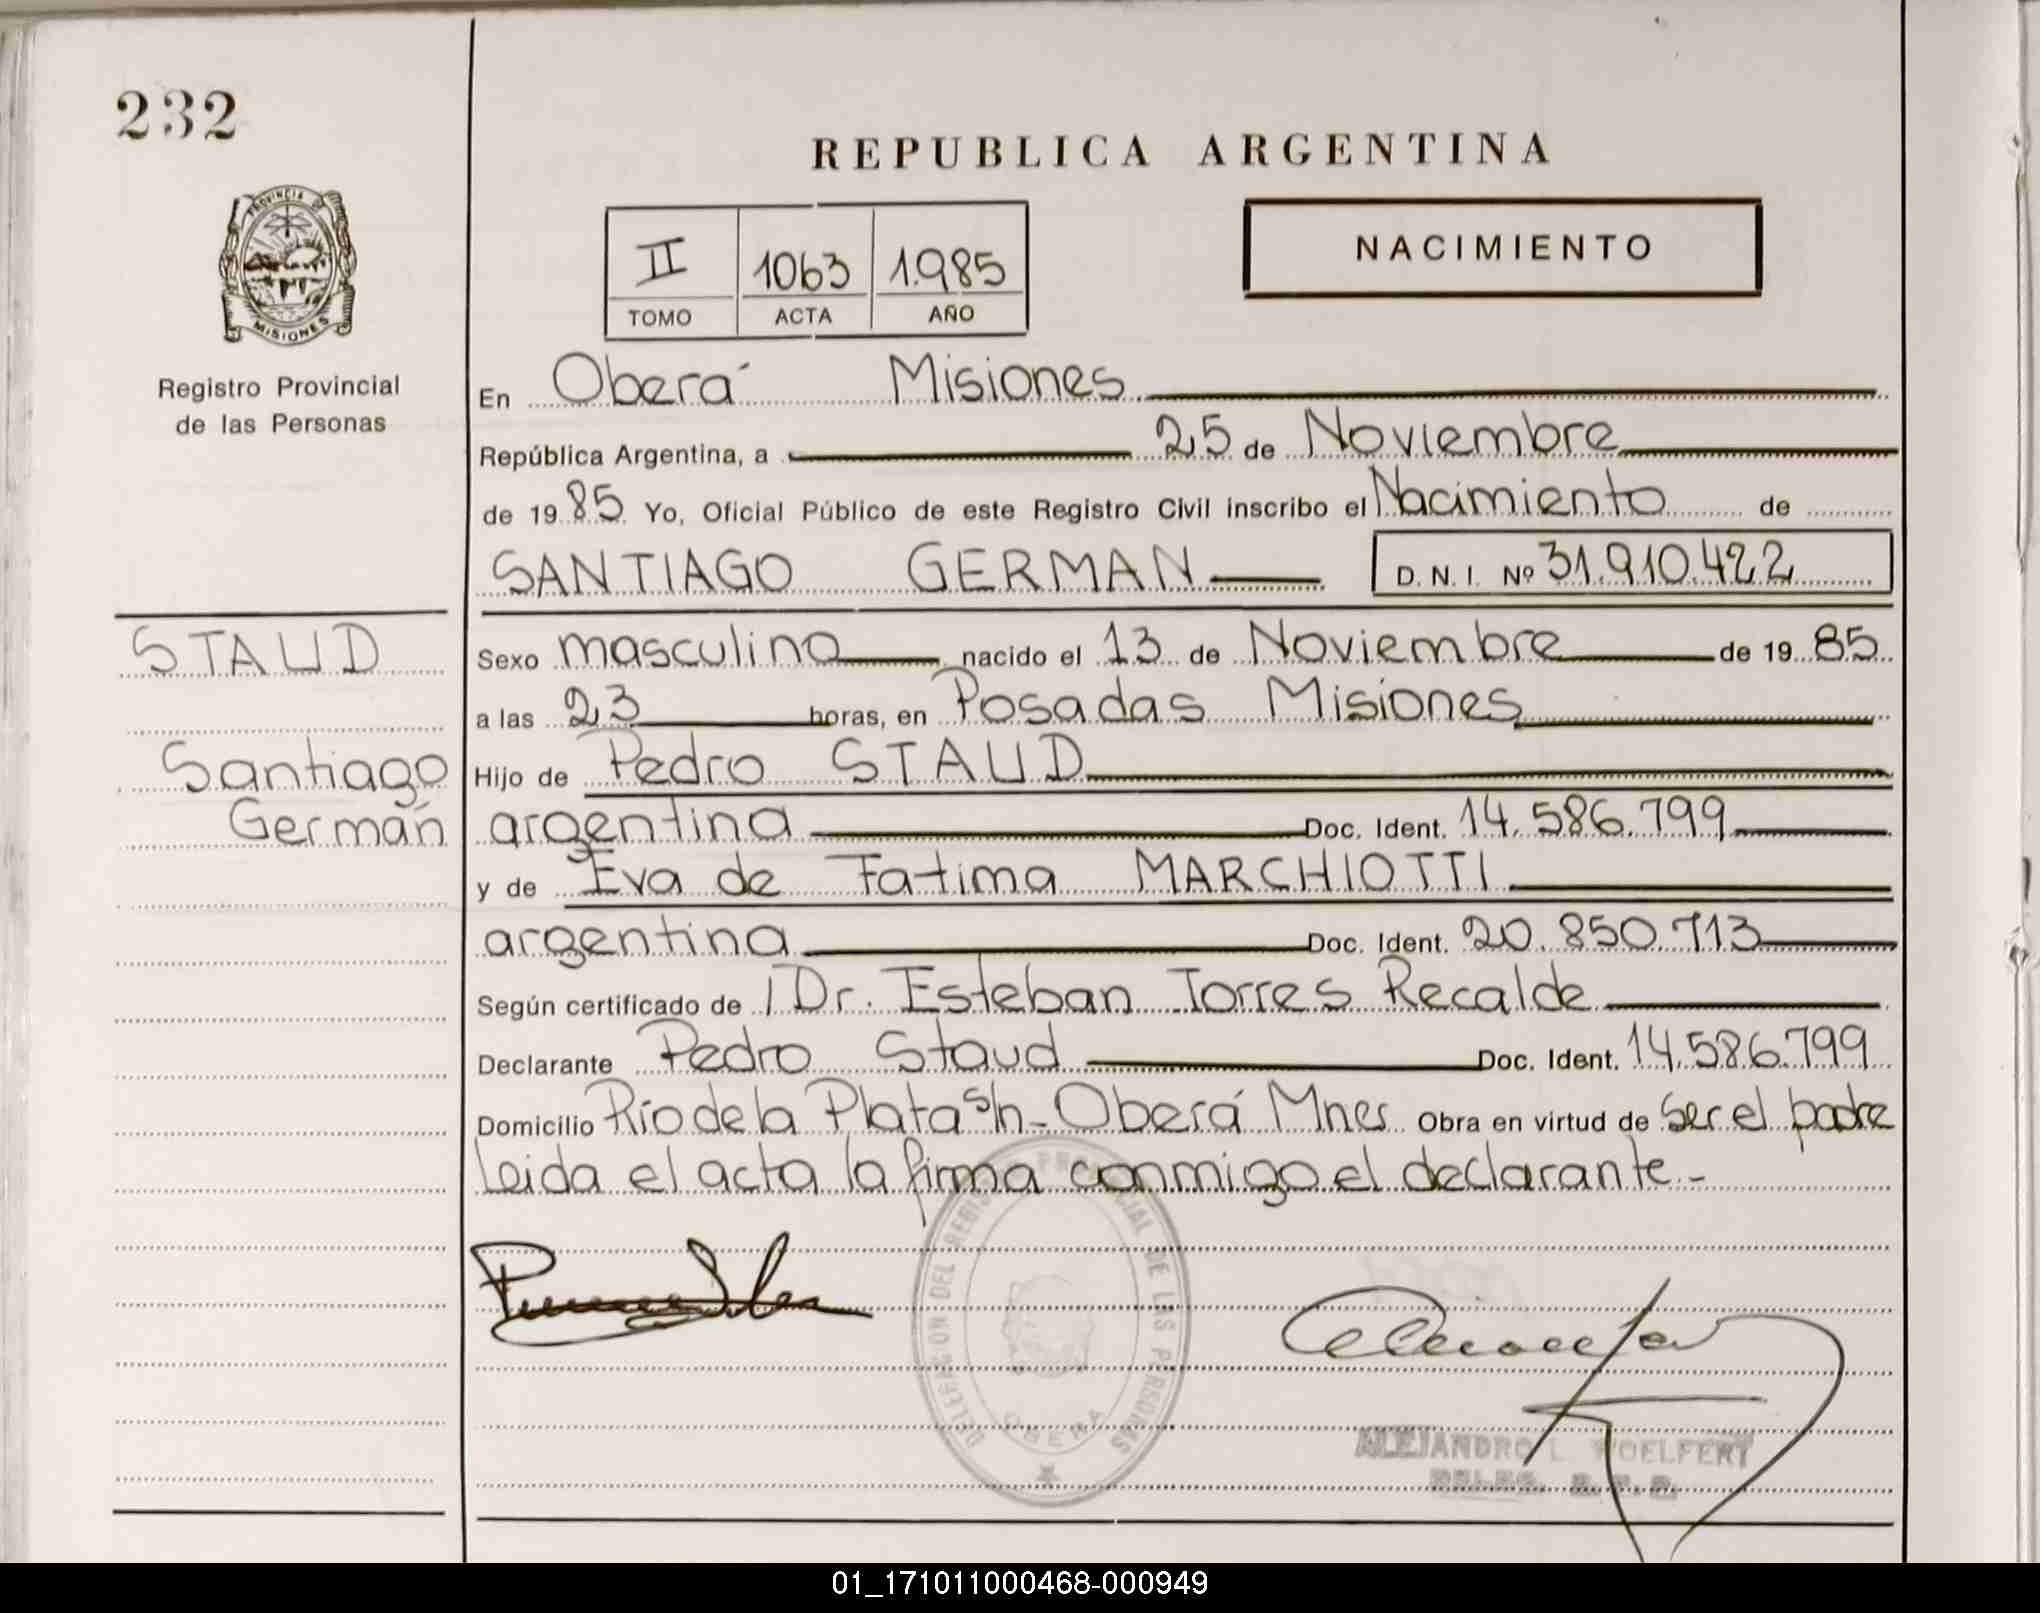 232
REPUBLICA ARGENTINA
PROVINCIA DE
MISIONES
II 1063 1.985
TOMO ACTA AÑO
NACIMIENTO
Registro Provincial
de las Personas
En Oberá Misiones
República Argentina, a 25 de Noviembre
de 1985 Yo, Oficial Público de este Registro Civil inscribo el Nacimiento de
SANTIAGO GERMAN D.N.I. Nº 31.910.422
STAUD
Santiago
Germán
Sexo masculino nacido el 13 de Noviembre de 1985
a las 23 horas, en Posadas Misiones
Hijo de Pedro STAUD
argentina Doc. Ident. 14.586.799
y de Eva de Fatima MARCHIOTTI
argentina Doc. Ident. 20.850.713
Según certificado de Dr. Esteban Torres Recalde
Declarante Pedro Staud Doc. Ident. 14.586.799
Domicilio Río de la Plata s/n - Oberá Mnes Obra en virtud de Ser el padre
Leida el acta la firma conmigo el declarante.-
DELEGACION DEL REGISTRO PROVINCIAL DE LAS PERSONAS
OBERA
ALEJANDRO L. WOELFERT
01_171011000468-000949